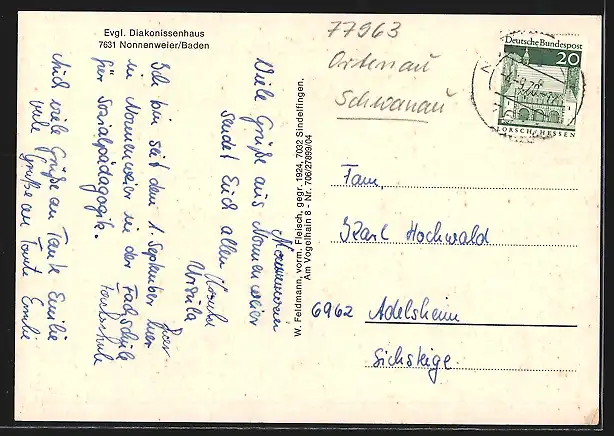 Evgl. Diakonissenhaus
7631 Nonnenweier/Baden
77963
Ortenau
Schwanau
Deutsche Bundespost
20
LORSCH/HESSEN
Viele Grüße aus Nonnenweier
sendet Euch allen
Ursula
Ich bin seit dem 1. September hier
in Nonnenweier in der Fachschule
für Sozialpädagogik.
Fachschule
Auch viele Grüße an Tante Emilie
viele Grüße an Tante Emilie
Nonnenweier
W. Feldmann, vorm. Fleisch, gegr. 1924, 7032 Sindelfingen,
Am Vogelhain 8 - Nr. 706/27899/04
Fam.
Karl Hochwald
6962 Adelsheim
Sichsteige.